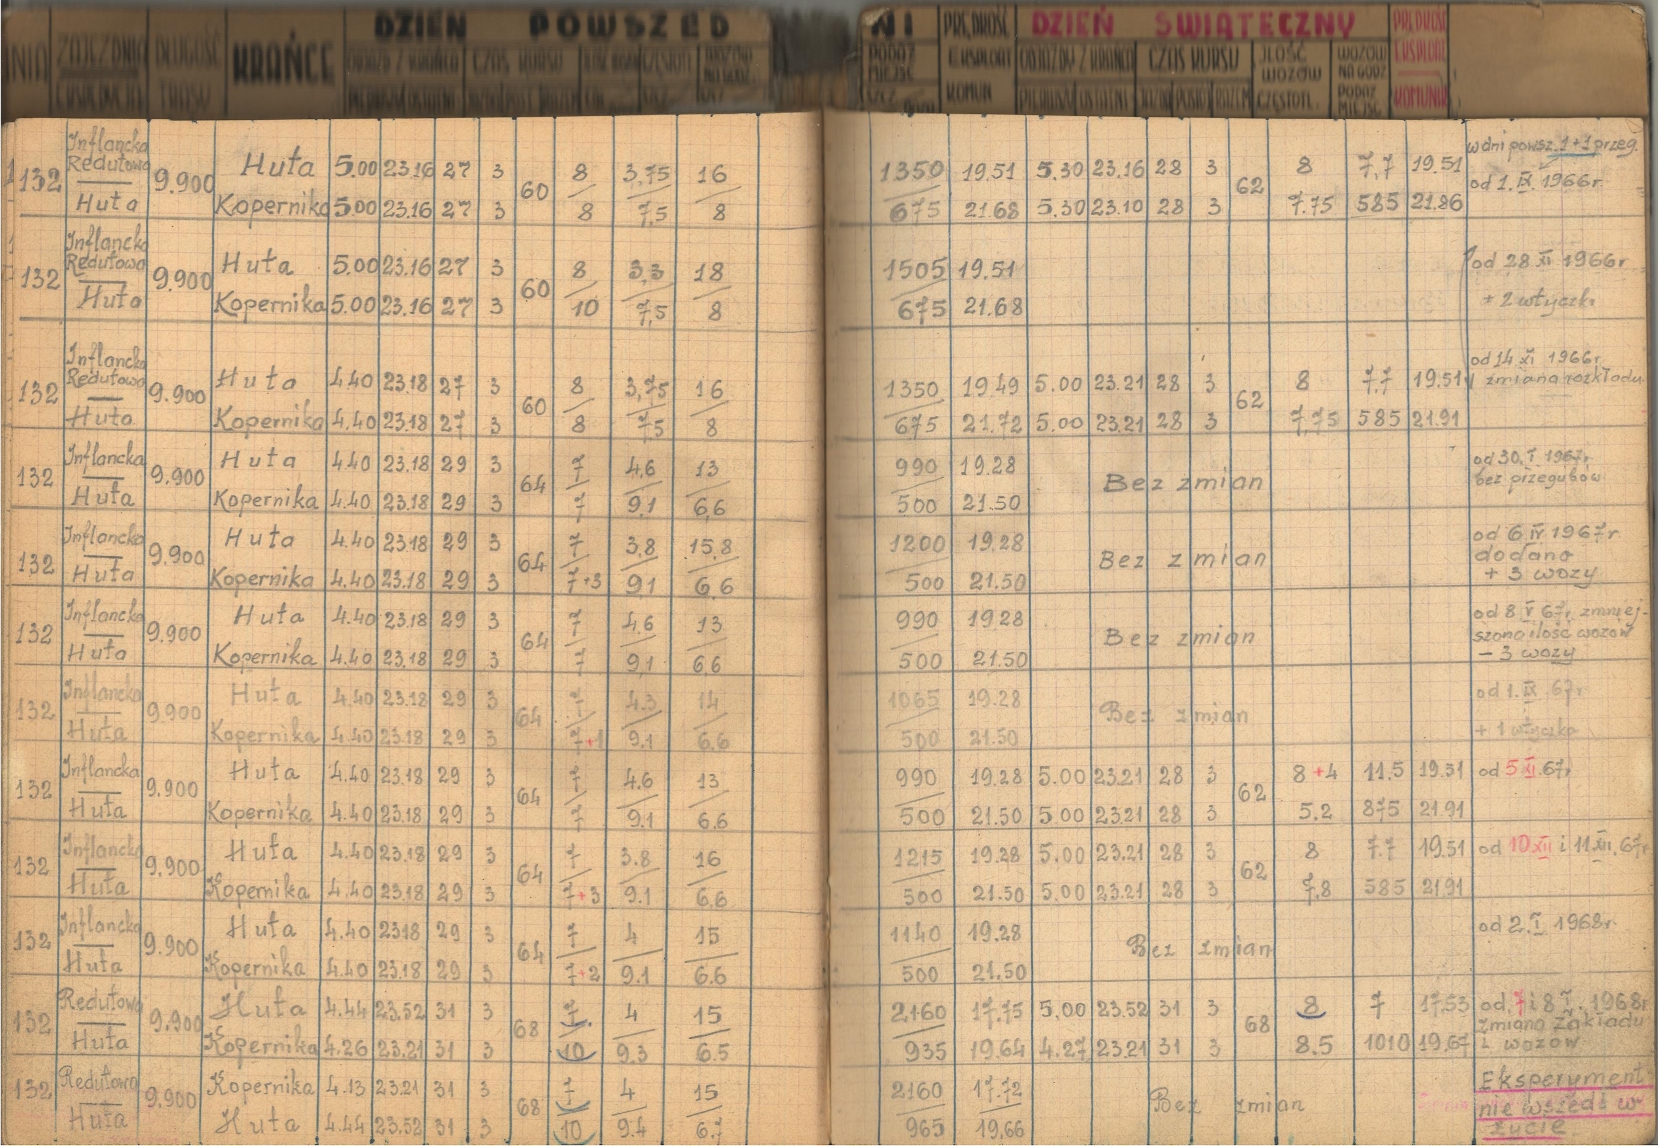 ZAJEZDNIA DŁUGOŚĆ KRAŃCE DZIEŃ POWSZED NI PRĘDKOŚĆ DZIEŃ ŚWIĄTECZNY PRĘDKOŚĆ
EKSPEDYCJA TRASY ODJAZD Z KRAŃCA CZAS KURSU PODAŻ MIEJSC EKSPLOAT ODJAZDY Z KRAŃCA CZAS KURSU ILOŚĆ WOZÓW WOZÓW NA GODZ EKSPLOAT
KOMUN PIERWSZY OSTATNI POSTÓJ RAZEM CZĘSTOTL. PODAŻ MIEJSC KOMUNIK
132 Inflancka Redutowa 9.900 Huta 5.00 23.16 27 3 60 8 3,75 16 1350 19.51 5.30 23.16 28 3 62 8 7,7 19.51 w dni powsz. 1+1 przeg.
Huta Kopernika 5.00 23.16 27 3 8 7,5 8 675 21.68 5.30 23.10 28 3 7.75 585 21.86 od 1. IX. 1966r.
132 Inflancka Redutowa 9.900 Huta 5.00 23.16 27 3 60 8 3,3 18 1505 19.51 od 28 XI 1966r
Huta Kopernika 5.00 23.16 27 3 10 7,5 8 675 21.68 + 2 wtyczki
132 Inflancka Redutowa 9.900 Huta 4.40 23.18 27 3 60 8 3,75 16 1350 19.49 5.00 23.21 28 3 62 8 7.7 19.51 od 14 XI 1966r. zmiana rozkładu
Huta Kopernika 4.40 23.18 27 3 8 7,5 8 675 21.72 5.00 23.21 28 3 7,75 585 21.91
132 Inflancka 9.900 Huta 4.40 23.18 29 3 64 7 4.6 13 990 19.28 Bez zmian od 30. I 1967r
Huta Kopernika 4.40 23.18 29 3 7 9,1 6,6 500 21.50 bez przegubów
132 Inflancka 9.900 Huta 4.40 23.18 29 3 64 7 3,8 15,8 1200 19.28 Bez zmian od 6 IV 1967r dodano
Huta Kopernika 4.40 23.18 29 3 7+3 9.1 6.6 500 21.50 + 3 wozy
132 Inflancka 9.900 Huta 4.40 23.18 29 3 64 7 4.6 13 990 19.28 Bez zmian od 8 V 67r. zmniej-
szona ilość wozów
Huta Kopernika 4.40 23.18 29 3 7 9,1 6.6 500 21.50 – 3 wozy
132 Inflancka 9.900 Huta 4.40 23.18 29 3 64 7 4.3 14 1065 19.28 Bez zmian od 1. IX 67r
Huta Kopernika 4.40 23.18 29 3 7+1 9.1 6.6 500 21.50 + 1 wtyczka
132 Inflancka 9.900 Huta 4.40 23.18 29 3 64 7 4.6 13 990 19.28 5.00 23.21 28 3 62 8+4 11.5 19.31 od 5 XI. 67r
Huta Kopernika 4.40 23.18 29 3 7 9.1 6.6 500 21.50 5.00 23.21 28 3 5.2 875 21.91
132 Inflancka 9.900 Huta 4.40 23.18 29 3 64 7 3.8 16 1215 19.28 5.00 23.21 28 3 62 8 7.7 19.51 od 10 XII i 11 XII. 67r
Huta Kopernika 4.40 23.18 29 3 7+3 9.1 6.6 500 21.50 5.00 23.21 28 3 7,8 585 21.91
132 Inflancka 9.900 Huta 4.40 23.18 29 3 64 7 4 15 1140 19.28 Bez zmian od 2. I 1968r.
Huta Kopernika 4.40 23.18 29 3 7+2 9.1 6.6 500 21.50
132 Redutowa 9.900 Huta 4.44 23.52 31 3 68 7 4 15 2160 17.75 5.00 23.52 31 3 68 8 7 17.53 od 7 i 8 I. 1968r
zmiana zakładu
Huta Kopernika 4.26 23.21 31 3 10 9.3 6.5 935 19.64 4.27 23.21 31 3 8.5 1010 19,67 i wozów
132 Redutowa 9.900 Kopernika 4.13 23.21 31 3 68 7 4 15 2160 17.72 Bez zmian Eksperyment
nie wszedł w
Huta Huta 4.44 23.52 31 3 10 9.4 6.7 965 19,66 życie